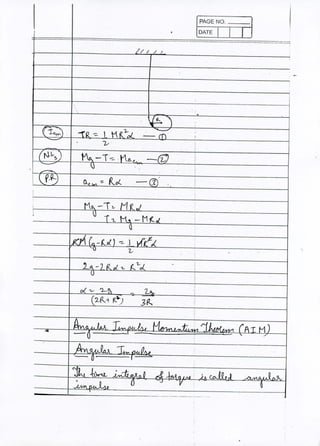 PAGE NO.
DATE
R
I cm
TR = 1/2 MR²α — ①
NL₂
Mg - T = Ma cm — ②
PR
a cm = Rα — ③
Mg - T = MRα
T = Mg - MRα
RM (g - Rα) = 1/2 MR²α
2g - 2Rα = R²α
α = 2g / (2R + R²) = 2g / 3R
Angular Impulse Momentum Theorem (AIM)
Angular Impulse
The time integral of torque is called angular
impulse